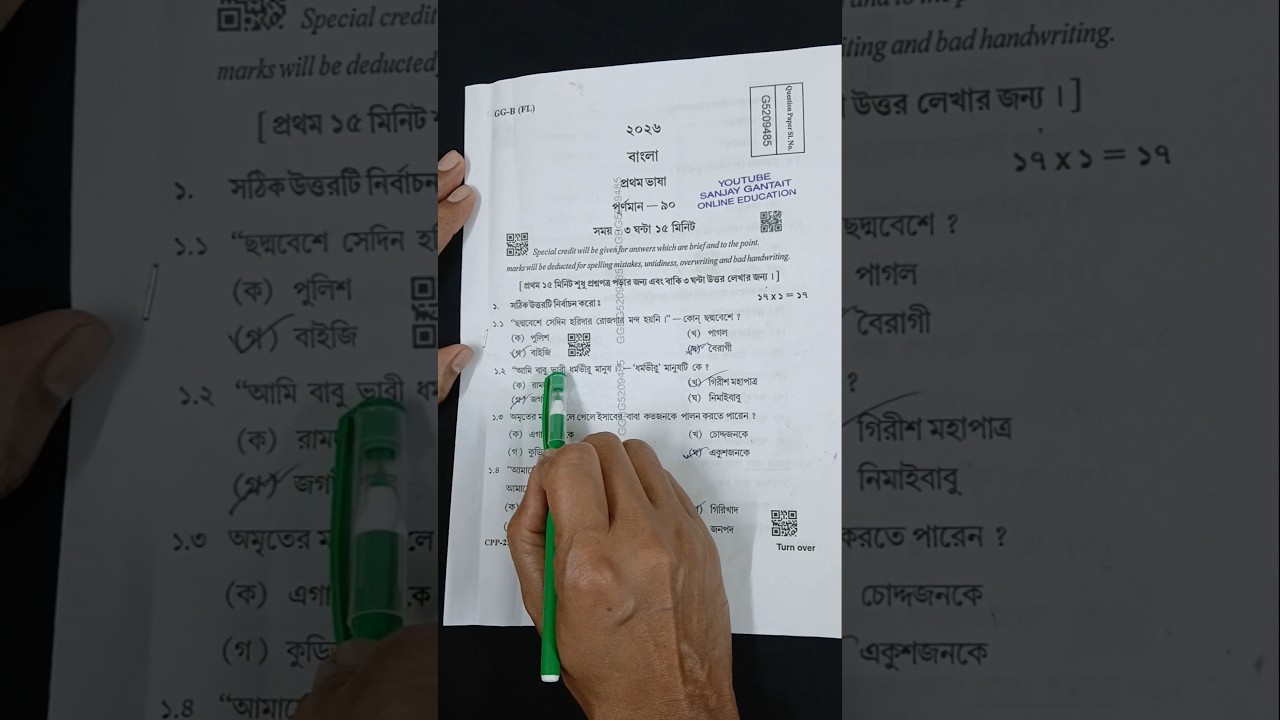 GG-B (FL)
Question Paper Sl. No.
G5209485
২০২৬
বাংলা
প্রথম ভাষা
পূর্ণমান — ৯০
সময় : ৩ ঘন্টা ১৫ মিনিট
YOUTUBE
SANJAY GANTAIT
ONLINE EDUCATION
Special credit will be given for answers which are brief and to the point.
marks will be deducted for spelling mistakes, untidiness, overwriting and bad handwriting.
[ প্রথম ১৫ মিনিট শুধু প্রশ্নপত্র পড়ার জন্য এবং বাকি ৩ ঘন্টা উত্তর লেখার জন্য । ]
১. সঠিক উত্তরটি নির্বাচন করো : ১৭ x ১ = ১৭
১.১ “ছদ্মবেশে সেদিন হরিদার রোজগার মন্দ হয়নি ।” — কোন্ ছদ্মবেশে ?
(ক) পুলিশ (খ) পাগল
(গ) বাইজি (ঘ) বৈরাগী
১.২ “আমি বাবু ভারী ধর্মভীরু মানুষ ।” — ‘ধর্মভীরু’ মানুষটি কে ?
(ক) (খ) গিরীশ মহাপাত্র
(গ) (ঘ) নিমাইবাবু
১.৩ অমৃতের পেলে ইসাবের বাবা কতজনকে পালন করতে পারেন ?
(ক) (খ) চোদ্দজনকে
(গ) (ঘ) একুশজনকে
১.৪
গিরিখাদ
জনপদ
Turn over